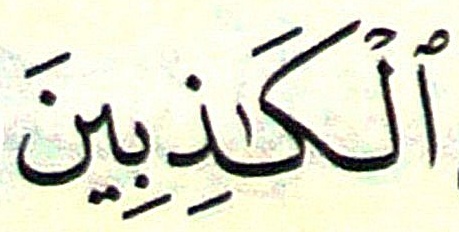 ٱلْكَٰذِبِينَ